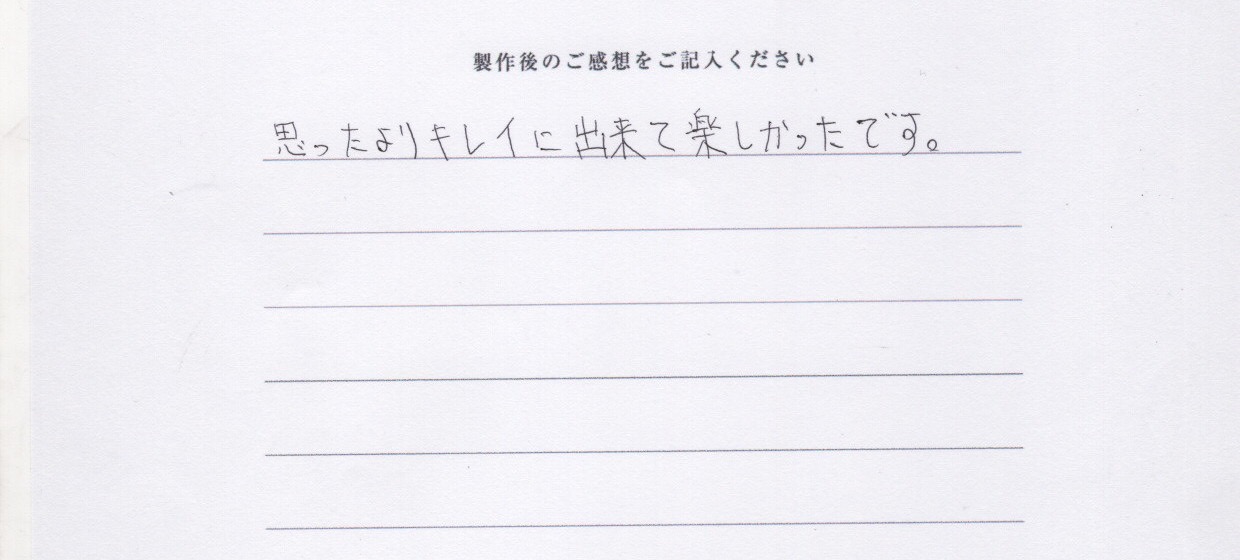 製作後のご感想をご記入ください
思ったよりキレイに出来て楽しかったです。